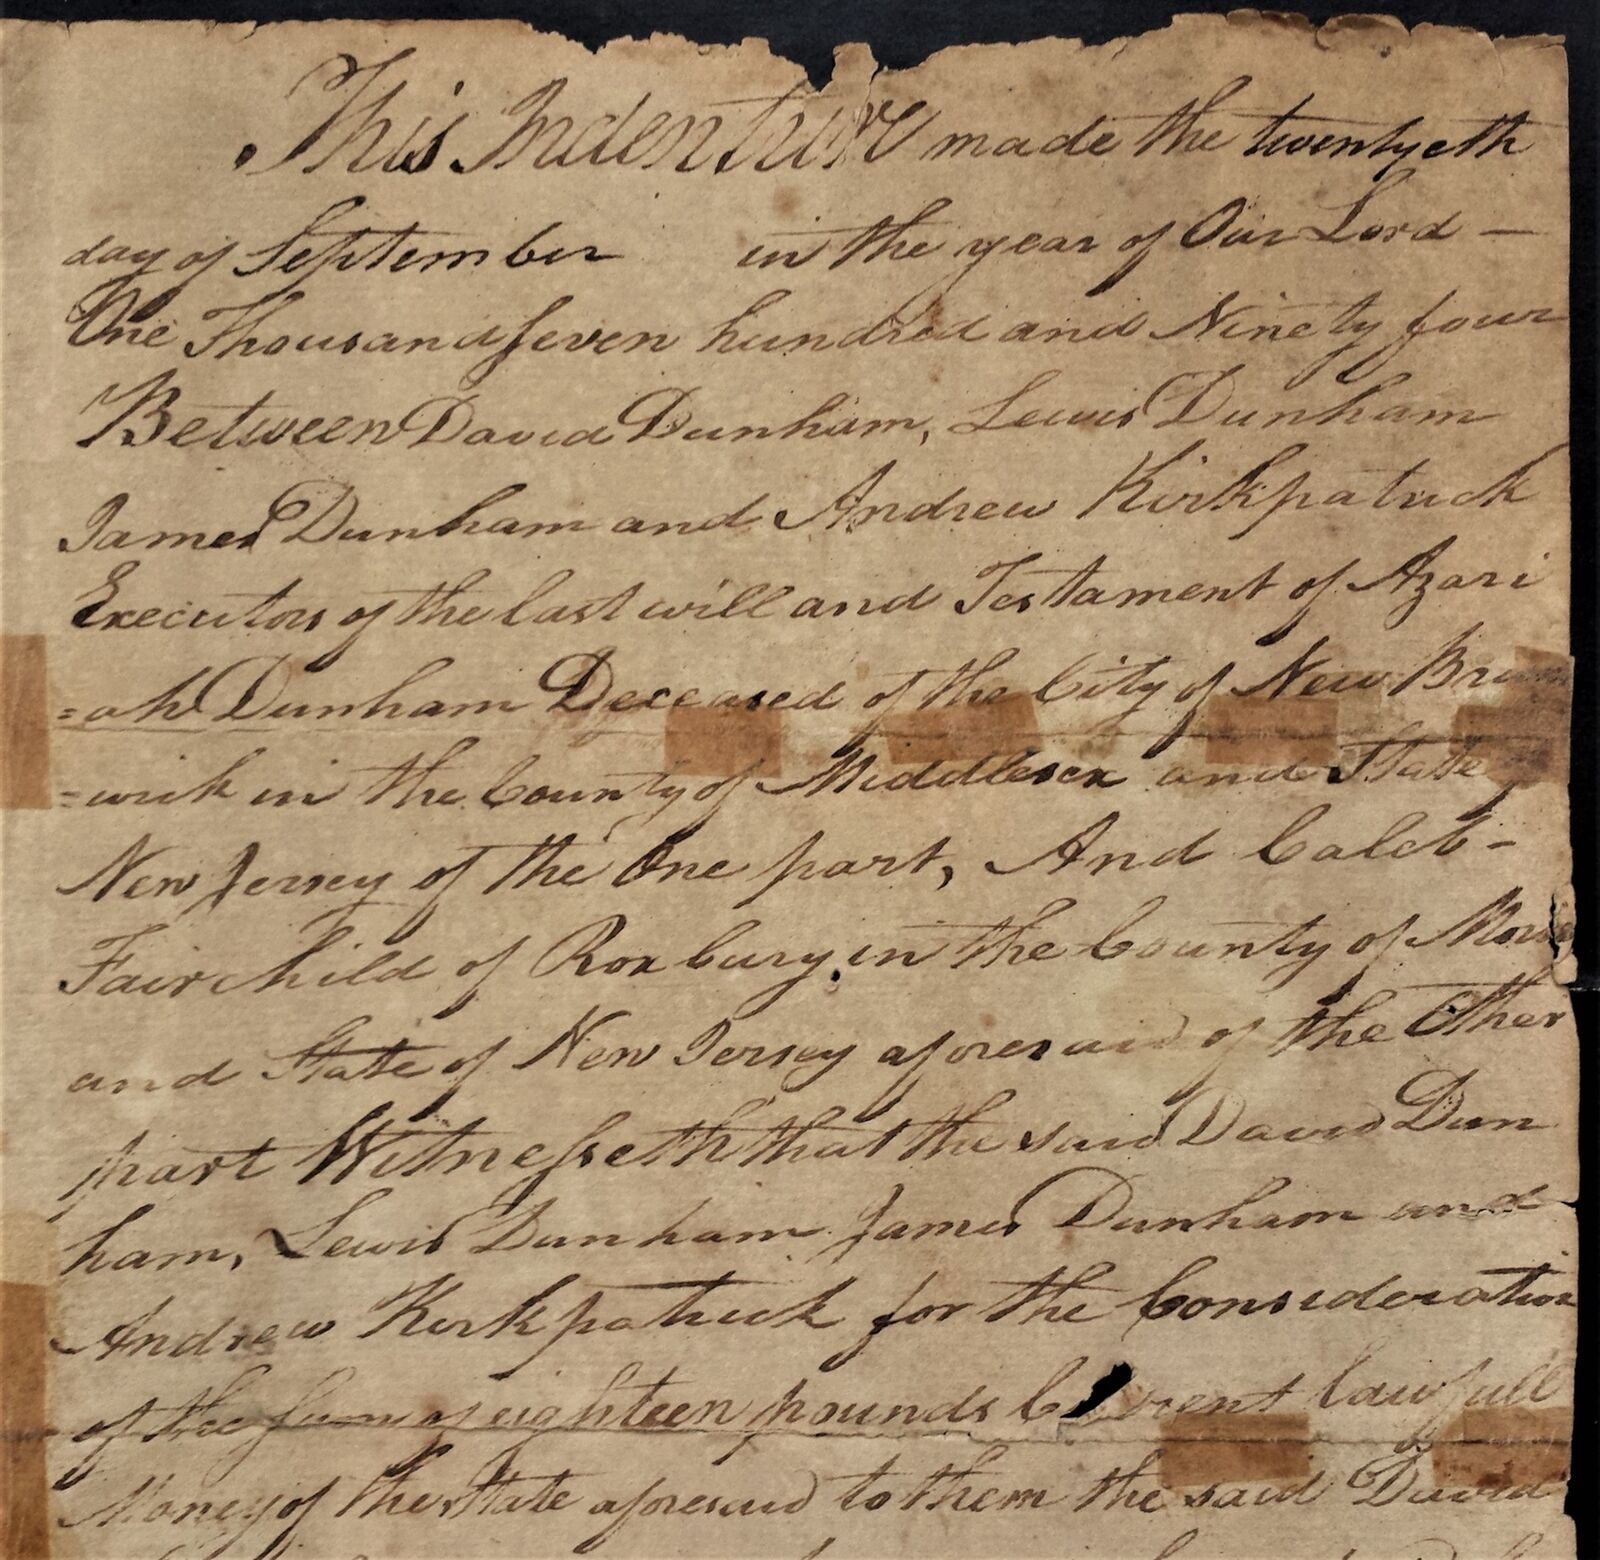 This Indenture made the twentyeth
day of September in the year of Our Lord —
One Thousand Seven hundred and Ninety four
Between David Dunham, Lewis Dunham
James Dunham and Andrew Kirkpatrick
Executors of the last will and Testament of Azari
=ah Dunham Deceased of the City of New Bruns
=wick in the County of Middlesex and State of
New Jersey of the One part, And Caleb -
Fairchild of Roxbury in the County of Morris
and State of New Jersey aforesaid of the Other
part Witnesseth that the said David Dun
ham, Lewis Dunham James Dunham and
Andrew Kirkpatrick for the Consideration
of the sum of eighteen pounds Current lawfull
Money of the State aforesaid to them the said David